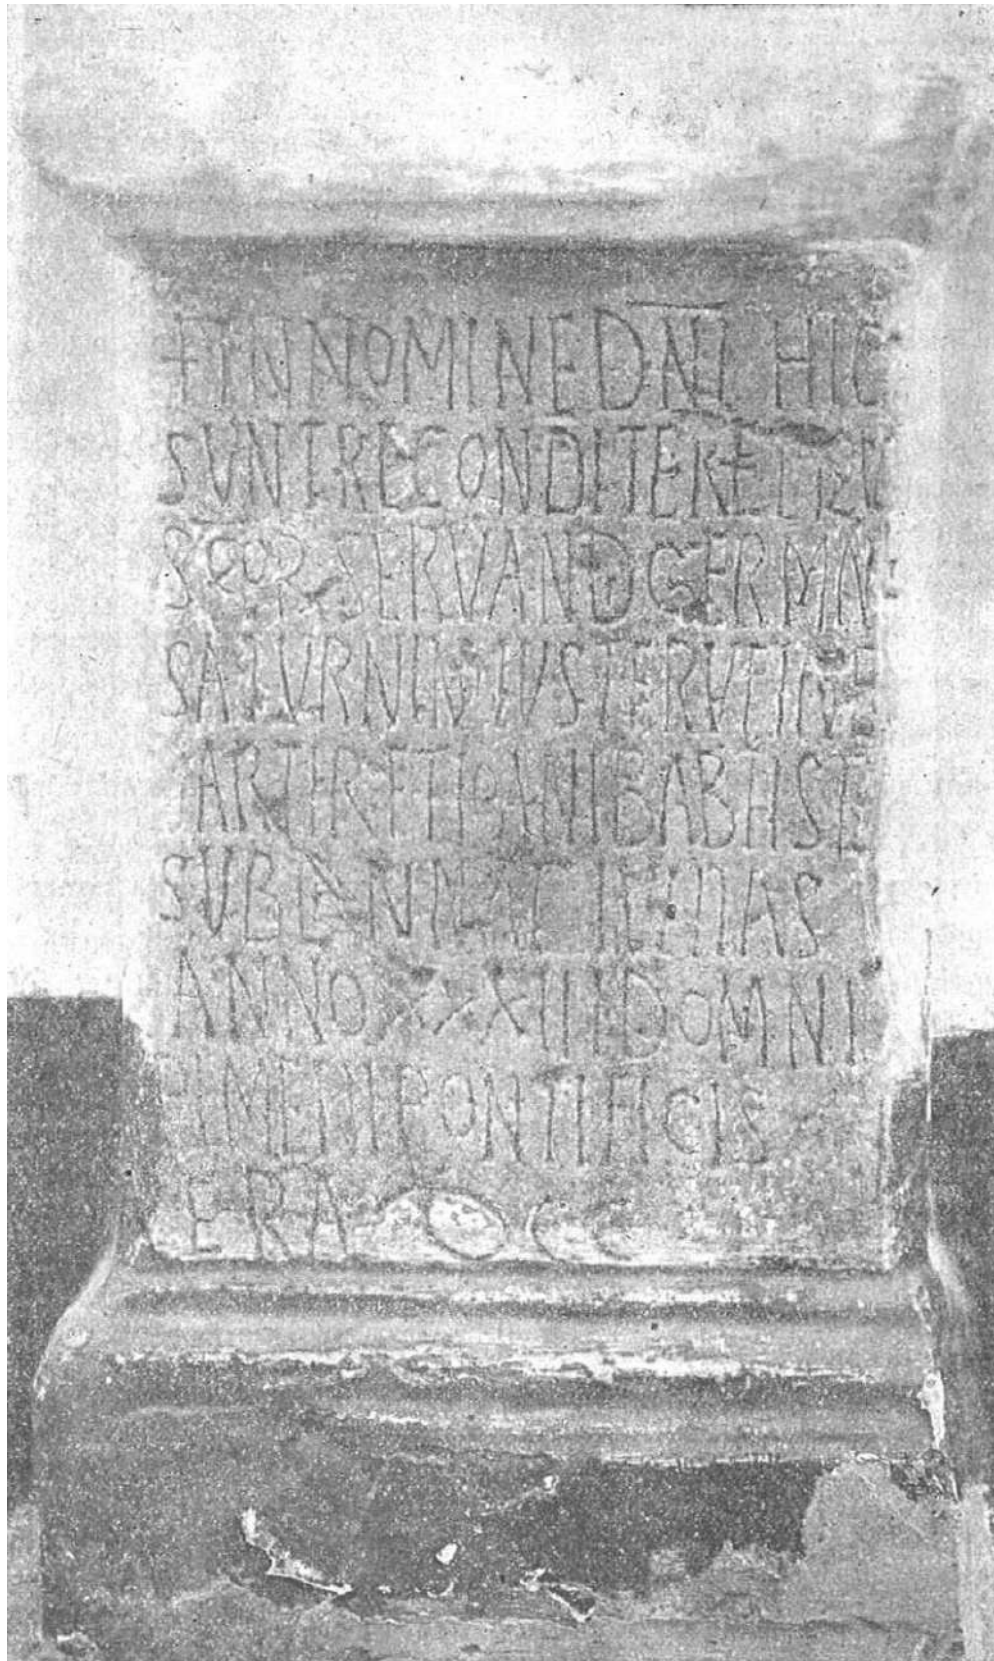 + IN NOMINE DNI HIC
SUNT RECONDITE RELIQU
SCOR SERVAND GERMAN
SATURNIN IUSTE RUFINE
MARTIR ET IOANNI BABTISTE
SUB D IDUS MAIAS
ANNO XXXIII DOMNI
PIMENI PONTIFICIS
ERA DCC